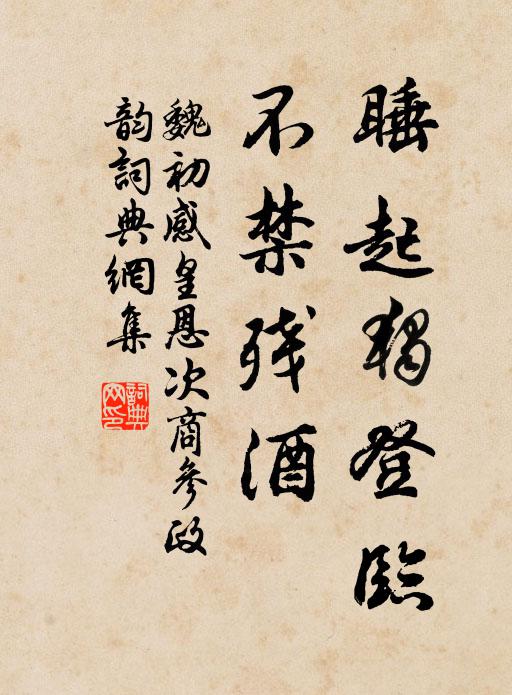 睡起獨登臨
不禁殘酒
魏初感皇恩次商參政
韵詞典網集
詞典網印